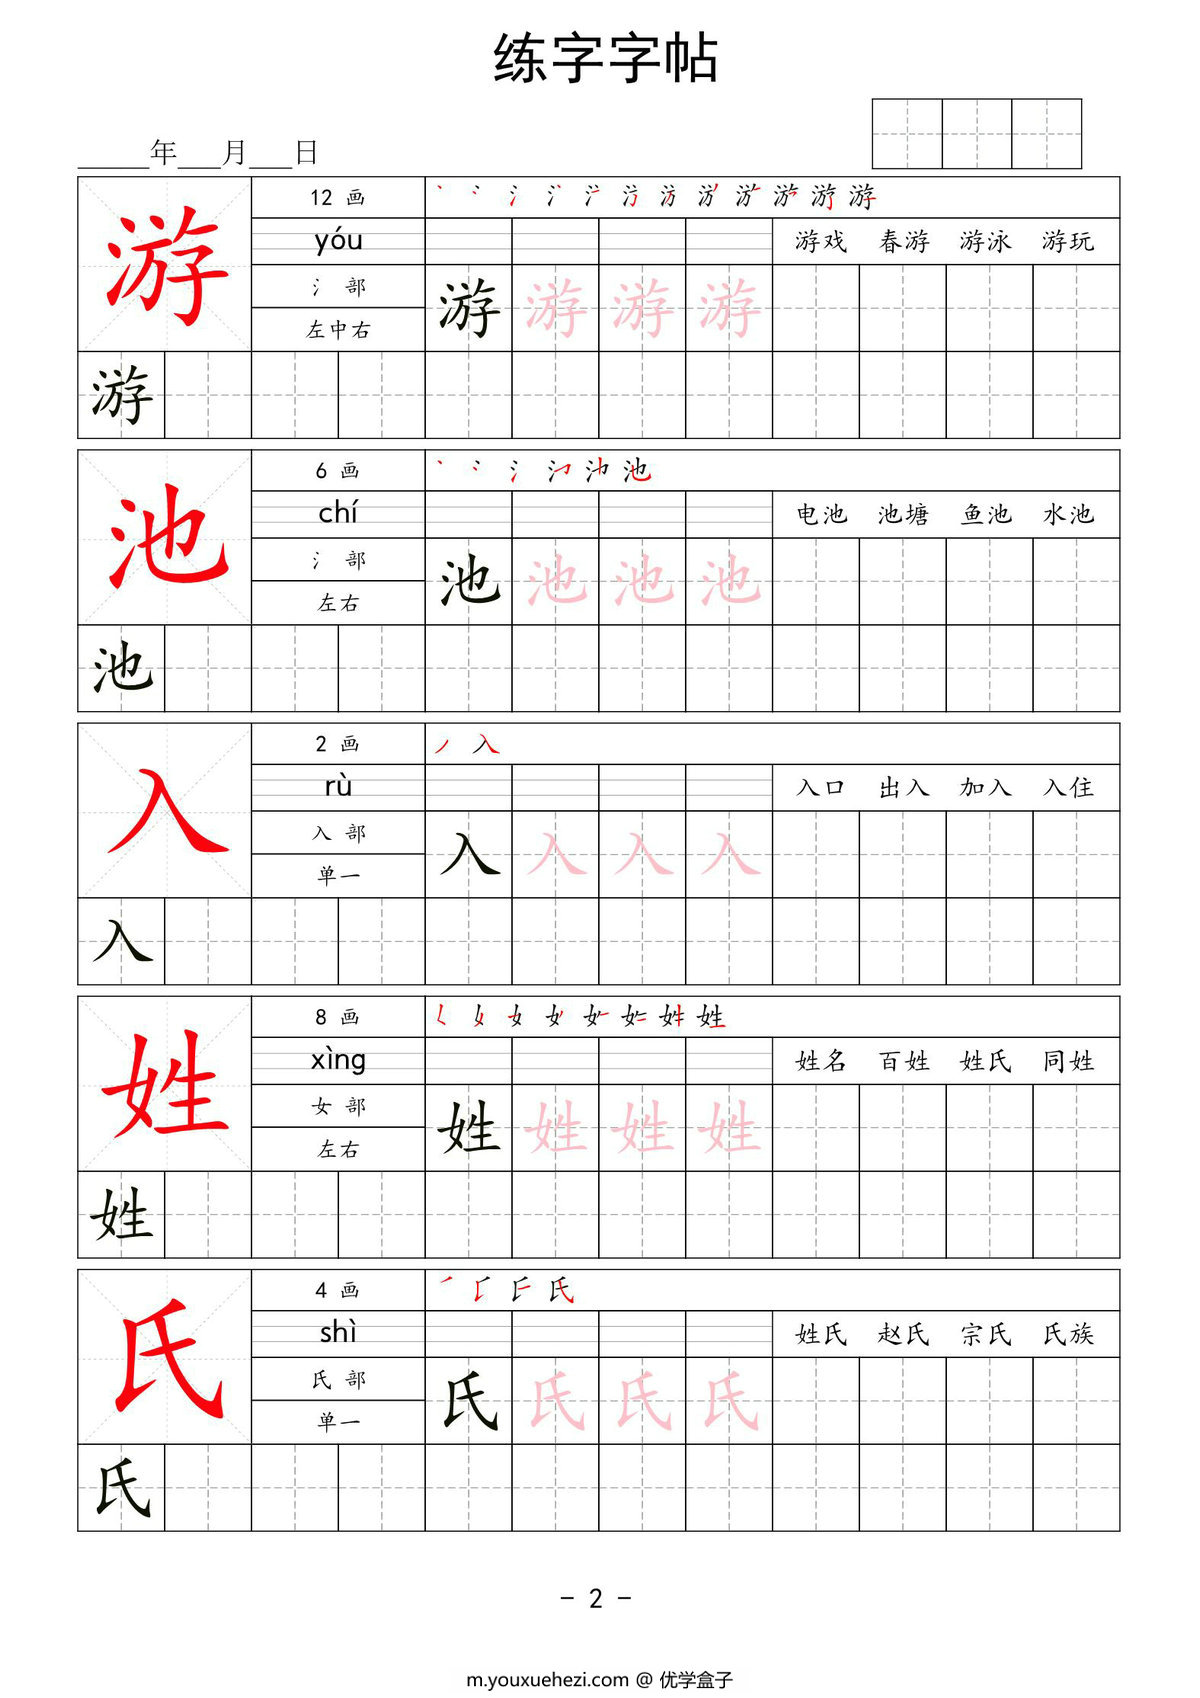 练字字帖
______年___月___日
12 画
yóu 游戏 春游 游泳 游玩
游 氵 部 游 游 游 游
左中右
游
6 画
chí 电池 池塘 鱼池 水池
池 氵 部 池 池 池 池
左右
池
2 画
rù 入口 出入 加入 入住
入 入 部 入 入 入 入
单一
入
8 画
xìng 姓名 百姓 姓氏 同姓
姓 女 部 姓 姓 姓 姓
左右
姓
4 画
shì 姓氏 赵氏 宗氏 氏族
氏 氏 部 氏 氏 氏 氏
单一
氏
- 2 -
m.youxuehezi.com @ 优学盒子